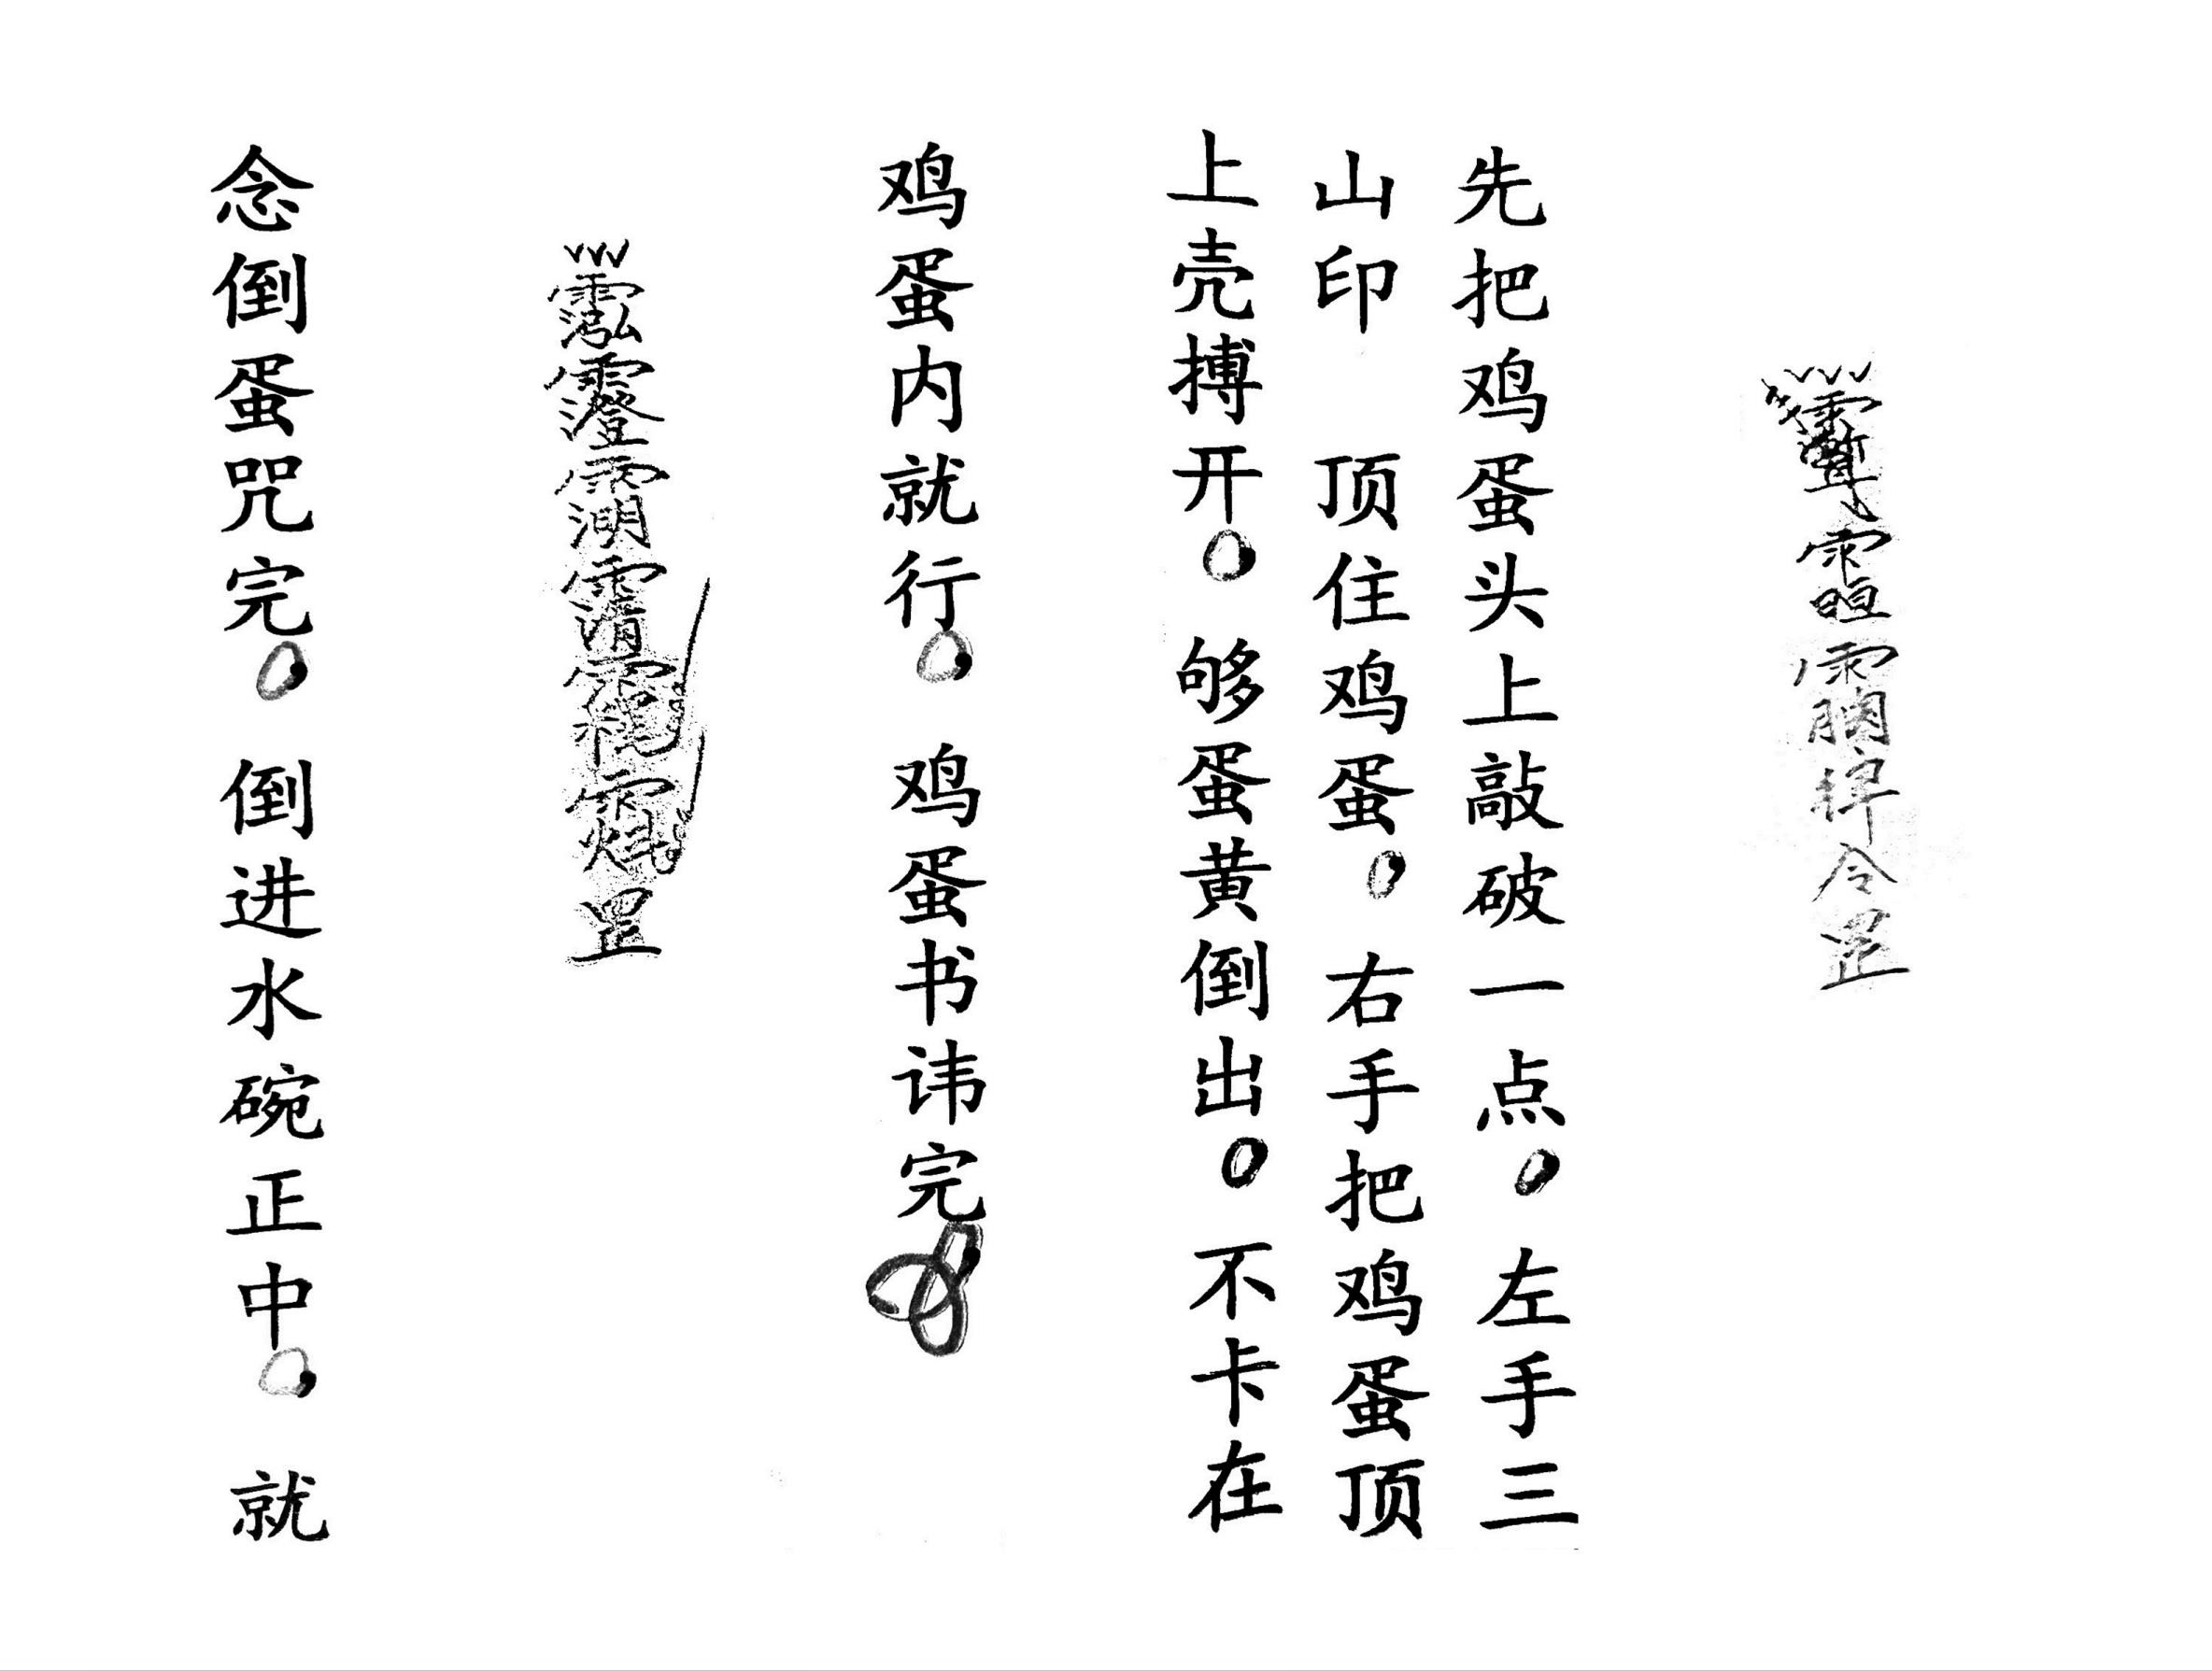 先把鸡蛋头上敲破一点。左手三
山印 顶住鸡蛋。右手把鸡蛋顶
上壳搏开。够蛋黄倒出。不卡在
鸡蛋内就行。鸡蛋书讳完
念倒蛋咒完。倒进水碗正中。就